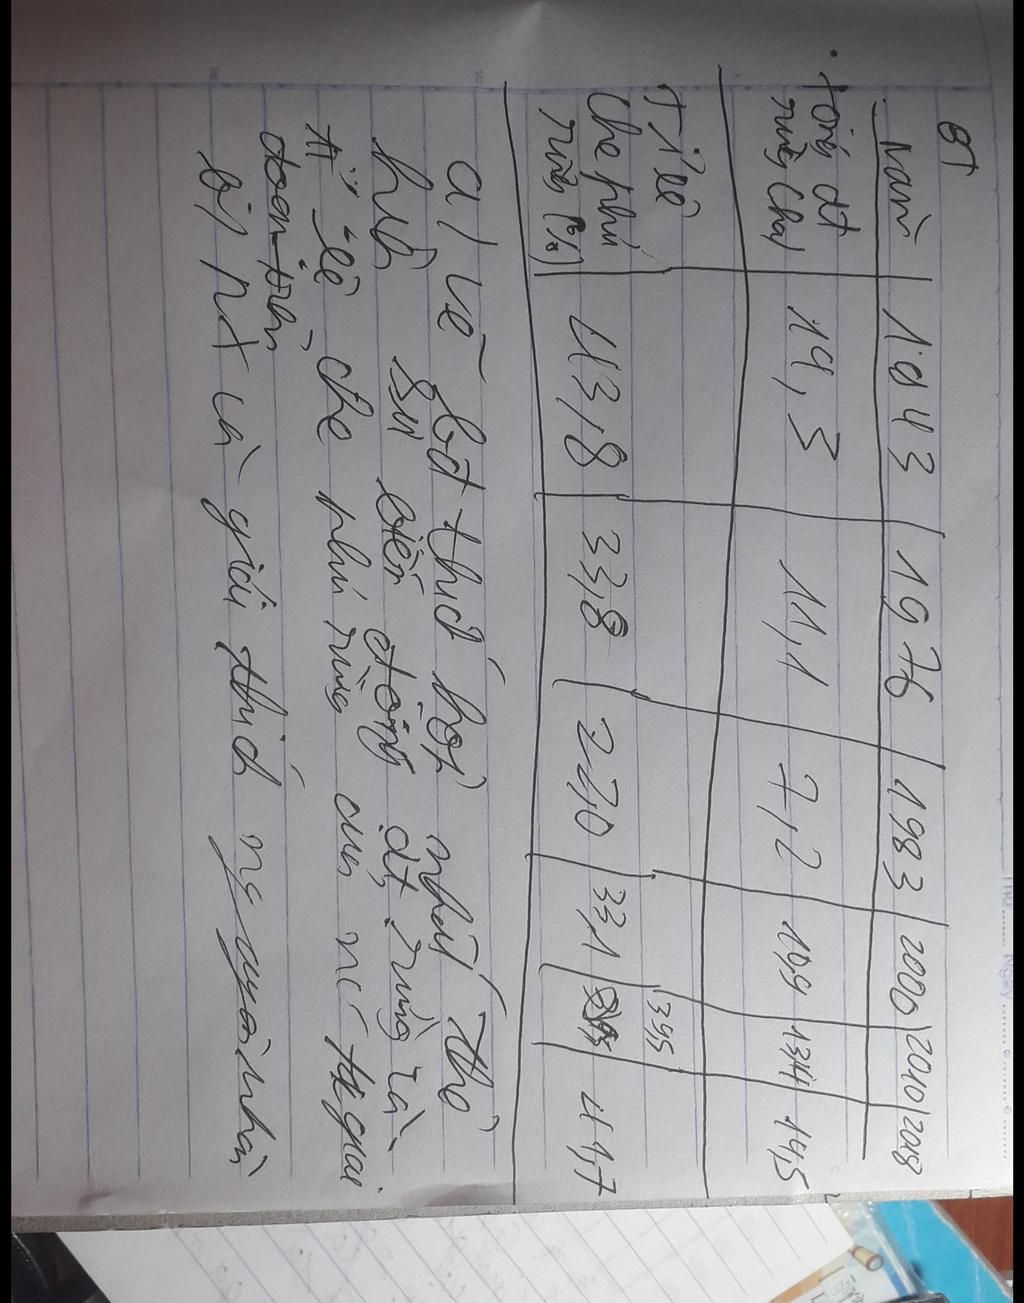 BT
Năm 1943 1976 1983 2000 2010 2018
Tổng dt
rừng (ha) 14,3 11,1 7,2 10,9 13,4 14,5
Tỉ lệ
che phủ
rừng (%) 43,8 33,8 22,0 33,1 39,5 41,7
a) vẽ bđ thích hợp nhất thể
hiện sự biến động dt rừng và
tỉ lệ che phủ rừng của nc ta giai
đoạn trên
b) nx và giải thích nguyên nhân